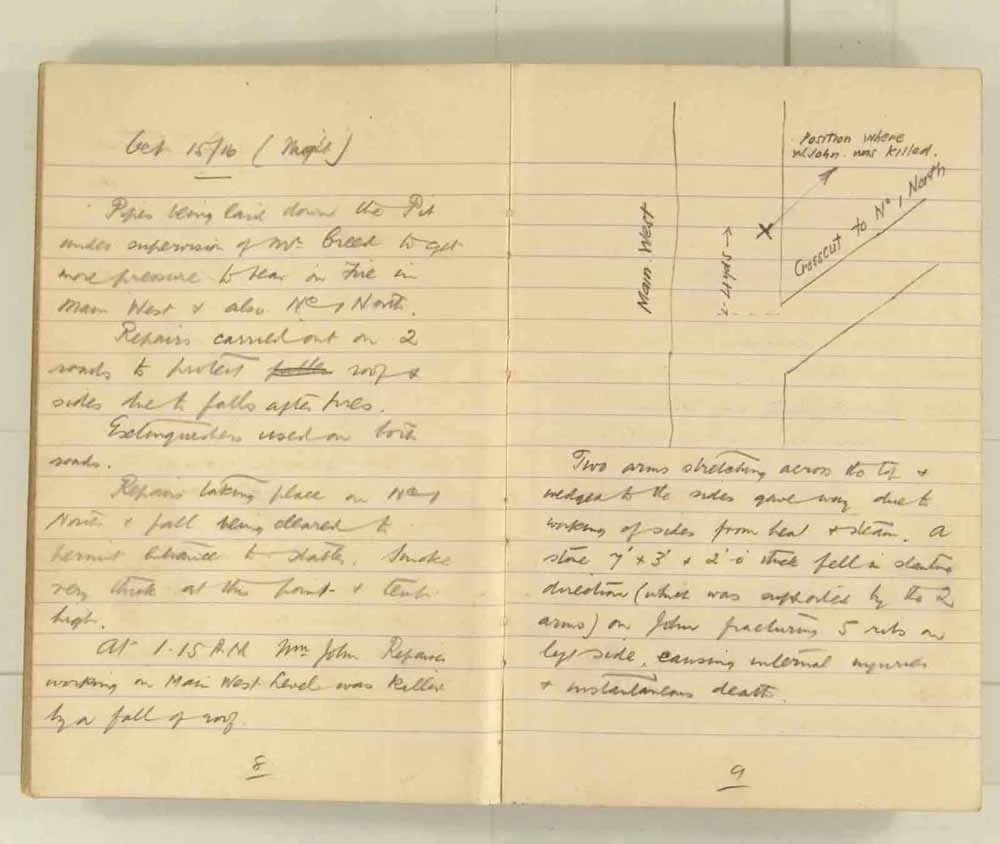 Oct 15/16 (Night)
Pipes being laid down the Pit
under supervision of Mr Creed to get
more pressure to bear on Fire in
Main West & also No 1 North.
Repairs carried out on 2
roads to protect roof &
sides due to falls after fires.
Extinguishers used on both
roads.
Repairs taking place on No 1
North & fall being cleared to
permit entrance to stables. Smoke
very thick at this point & temp
high.
At 1.15 A.M Wm John Repairer
working on Main West Level was killed
by a fall of roof.
8
Position where
W. John was killed.
Main West
4 yds
Crosscut to No 1 North
Two arms stretching across the top &
wedged to the sides gave way due to
working of sides from heat & steam. A
stone 7' x 3' x 2'-0 thick fell in slanting
direction (which was supported by the 2
arms) on John fracturing 5 ribs on
left side, causing internal injuries
& instantaneous death.
9